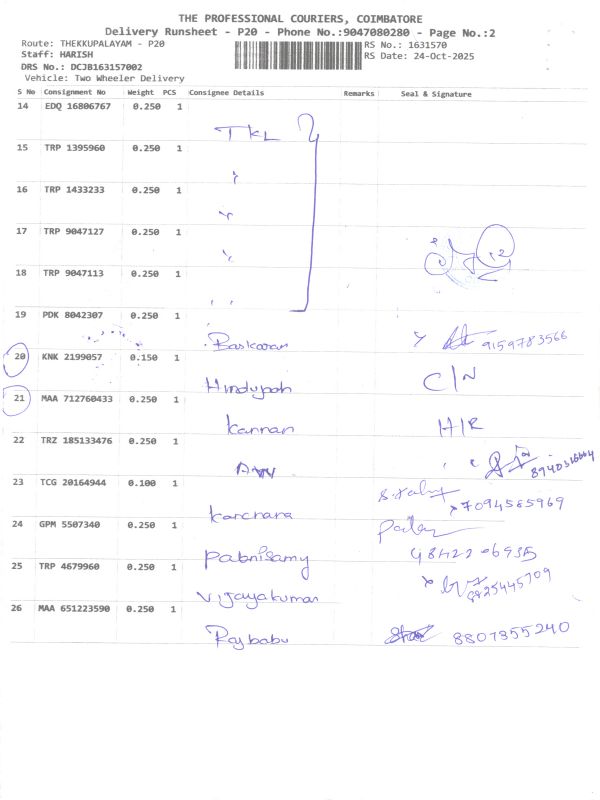 THE PROFESSIONAL COURIERS, COIMBATORE
Delivery Runsheet - P20 - Phone No.:9047080280 - Page No.:2
Route: THEKKUPALAYAM - P20
RS No.: 1631570
Staff: HARISH
RS Date: 24-Oct-2025
DRS No.: DCJB163157002
Vehicle: Two Wheeler Delivery
S No Consignment No Weight PCS Consignee Details Remarks Seal & Signature
14 EDQ 16806767 0.250 1
TKL
15 TRP 1395960 0.250 1
16 TRP 1433233 0.250 1
17 TRP 9047127 0.250 1
18 TRP 9047113 0.250 1
" "
19 PDK 8042307 0.250 1
Baskaran 9159783566
20 KNK 2199057 0.150 1
C/N
21 MAA 712760433 0.250 1
Kannan H/R
22 TRZ 185133476 0.250 1
23 TCG 20164944 0.100 1
Kanchana 7094585969
24 GPM 5507340 0.250 1
Palanisamy
25 TRP 4679960 0.250 1
Vijayakumar 8825445709
26 MAA 651223590 0.250 1
Rajbabu 8807355240